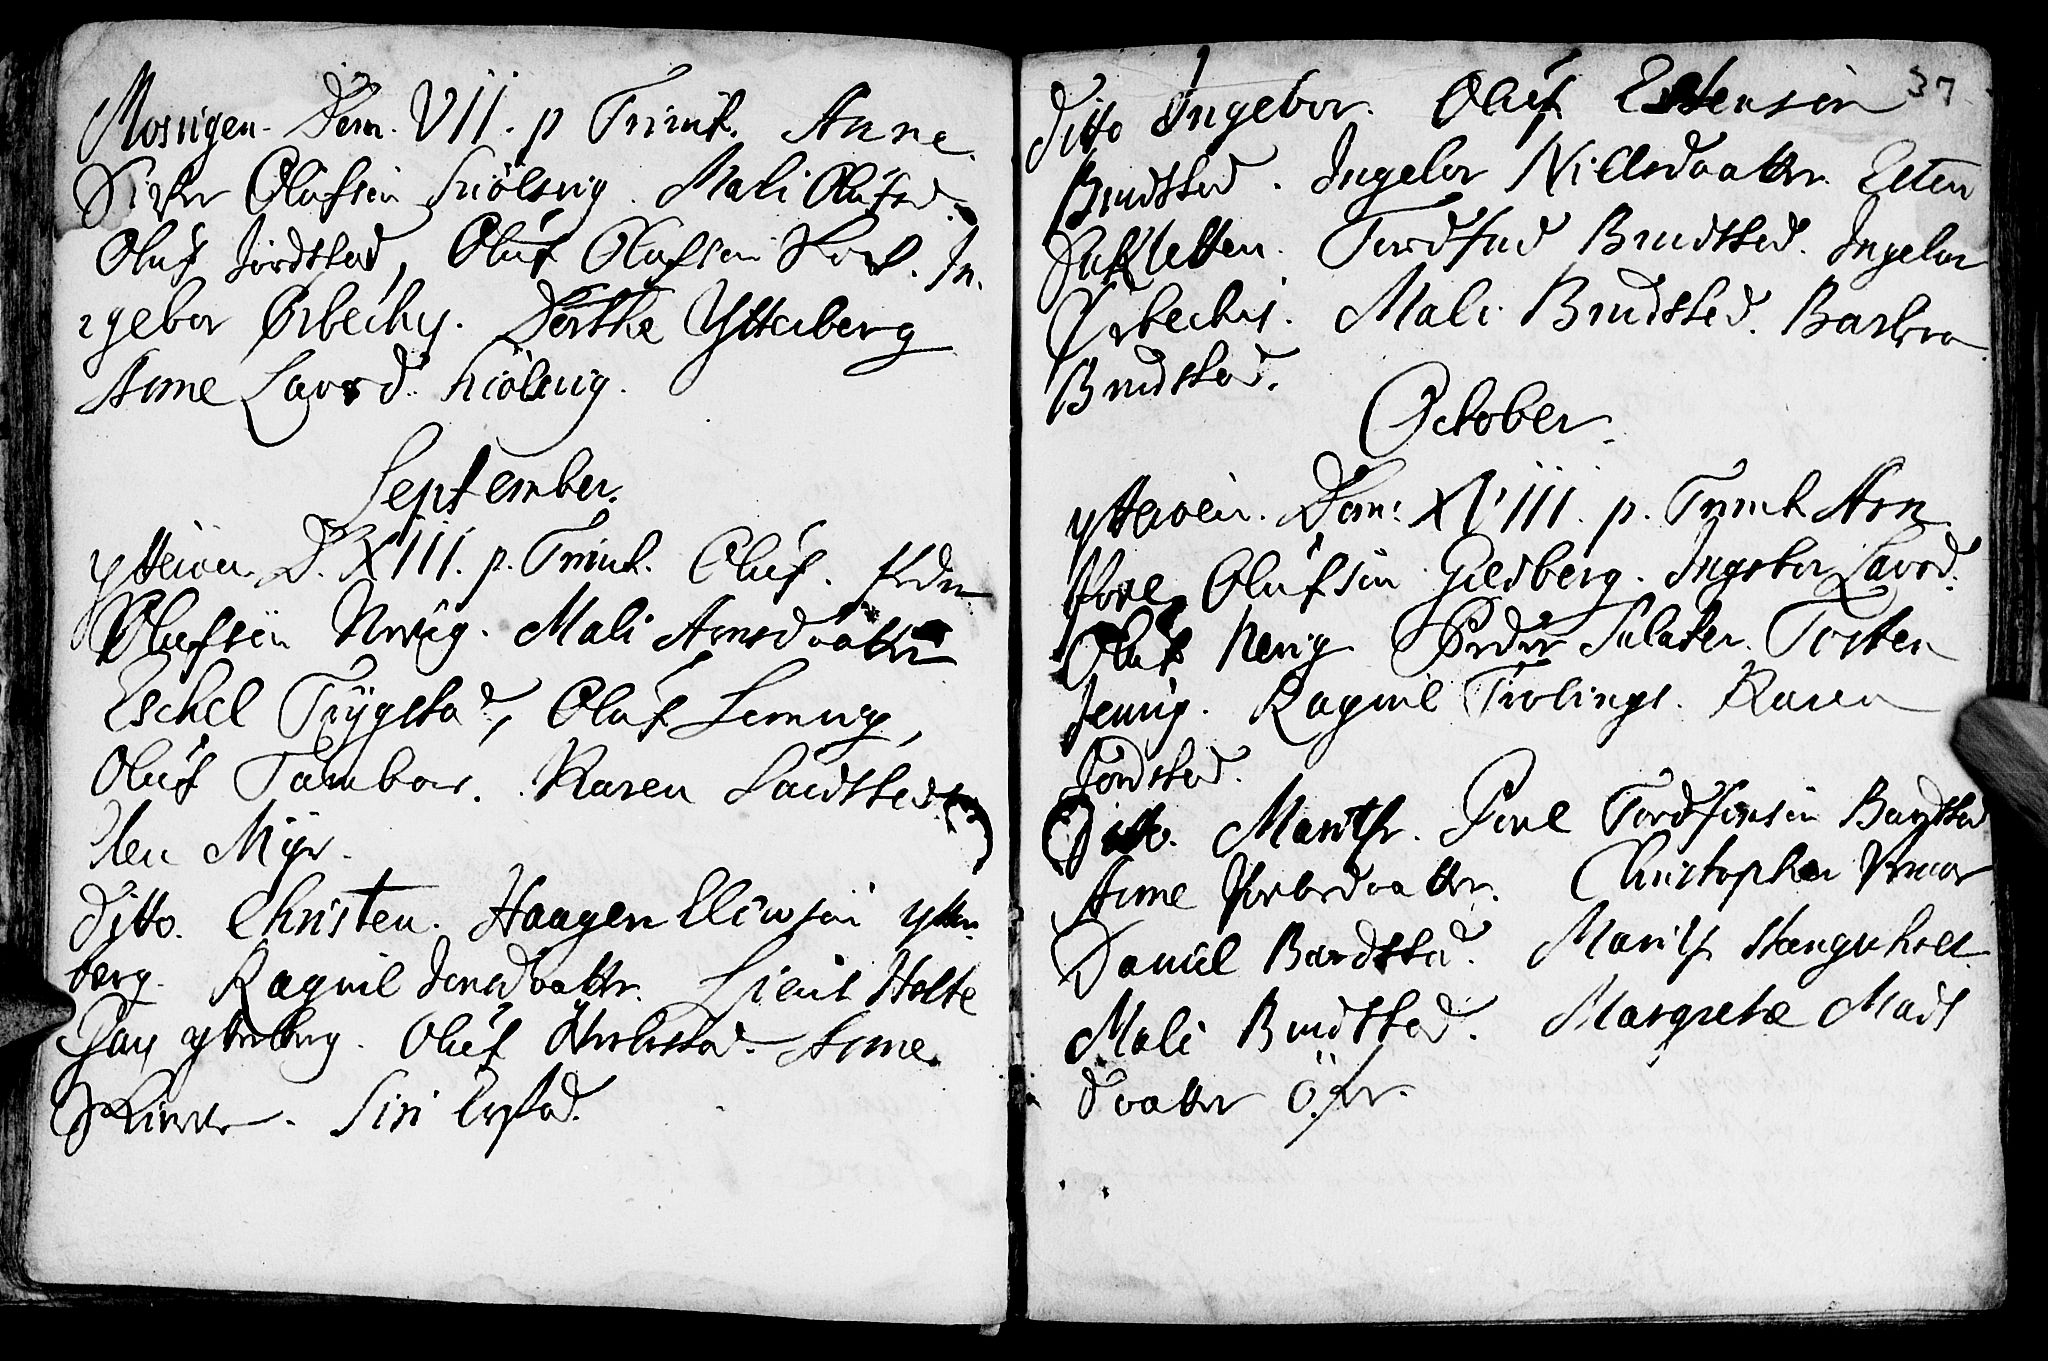 Mossigen. Dom. VII. p Trinit. Anne.
Siver Olufsen Kiölsvig. Mali Olufsd.
Oluf Jördstad, Oluf Olufsen In-
gebor Orbechs. Dorthe Ytterberg
Anne Larsd. Kiölsvig.
September.
Ytteröen. D. XIII. p. Trinit. Oluf. Peder
Olufsen Nervig. Mali Arnsdaatter
Eschel Trygstad, Oluf Lemvig,
Oluf Tambor. Karen Laidsted
Elen Myr.
Ditto. Christen. Haagen Ellewsen ytter
berg. Ragnil Jensdaatter. Lieut Holte
ytterberg. Oluf Anne
Siri
37
Ditto Ingebor. Oluf Estensen
Brudstad. Ingebor Nillsdaatter. Esten
Tordfind Brudsted. Ingebor
Orbechs. Mali Brudsted. Barbra
Brudstad.
October.
ytteröen. Dom: XVIII. p. Trinit Arn
Povel Olufsen Gilberg. Ingebor Larsd.
Oluf Nervig Peder Salater. Tosten
Jenvig. Ragnil Trolings. Karen
Jördstad.
Ditto. Marith. Povel Tordfinsen Bardstad
Anne Christopher
Daniel Bardstad. Marith
Mali Brudstad. Margrete Mads
daatter Öfr.